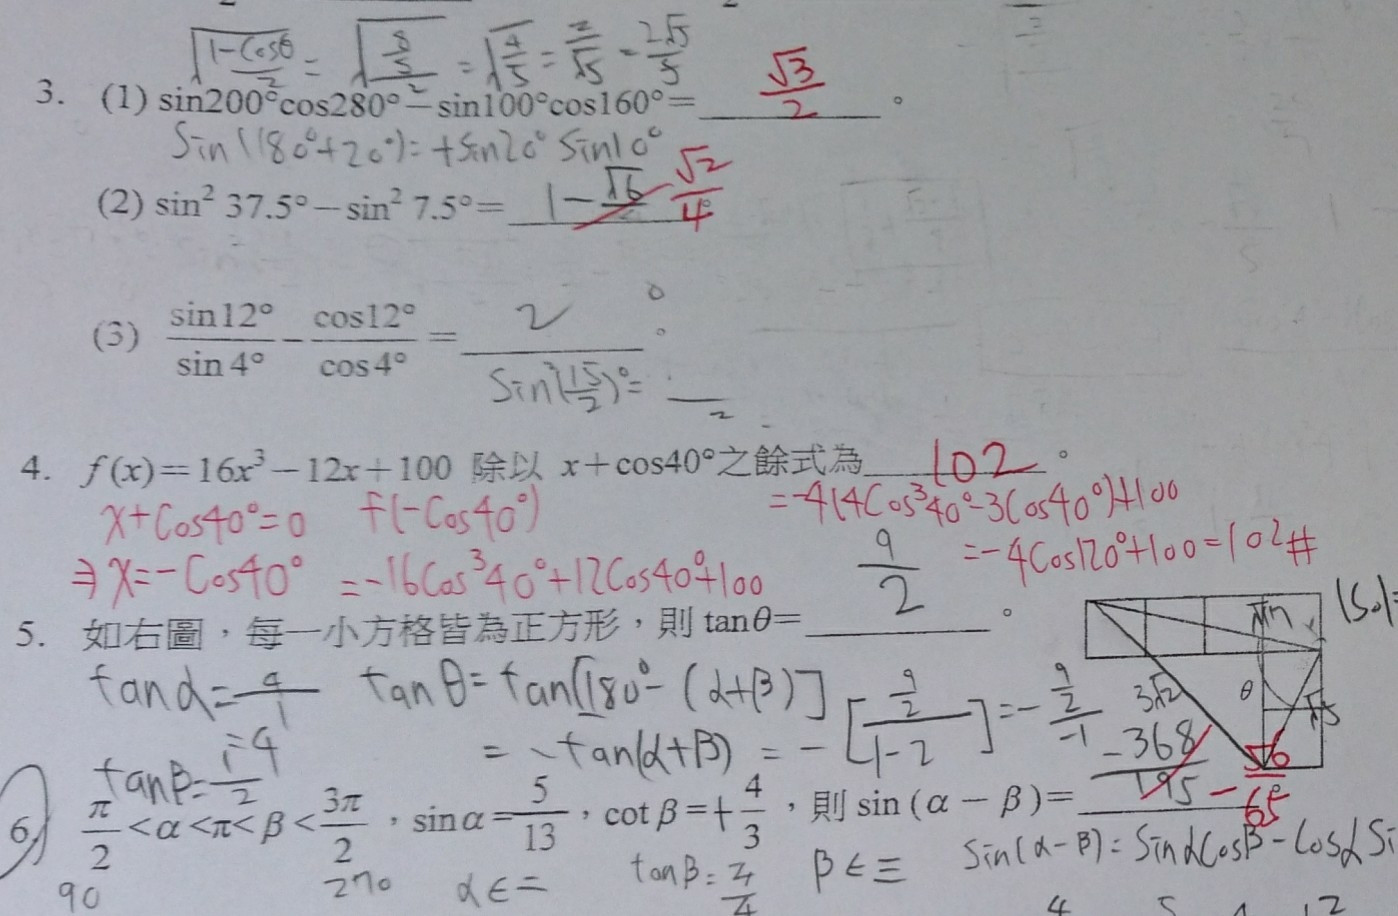 √((1-cosθ)/2) = √((8/5)/2) = √(4/5) = 2/√5 = 2√5/5
3. (1) sin200°cos280°－sin100°cos160°= √3/2 。
Sin(180°+20°)=+Sin20° Sin10°
(2) sin² 37.5°－sin² 7.5°= 1-√6 √2/4
(3) sin12°/sin4° － cos12°/cos4° = 2 。
Sin²(15/2)°= —/2
4. f(x)=16x³－12x+100 除以 x+cos40°之餘式為 102 。
x+Cos40°=0 f(-Cos40°) =-4(4Cos³40°-3Cos40°)+100
⇒x=-Cos40° =-16Cos³40°+12Cos40°+100 =-4Cos120°+100=102#
5. 如右圖，每一小方格皆為正方形，則 tanθ= 9/2 。
tanα=4/1=4 tanθ=tan[180°-(α+β)]
tanβ=1/2 =-tan(α+β) = -[(9/2)/(1-2)]=-(9/2)/-1
(Sol=
3√2 θ √5
6. π/2<α<π<β<3π/2，sinα=5/13，cotβ=+4/3，則 sin(α－β)= -368/195 -56/65
90 270 α∈二 tanβ=3/4 β∈三 Sin(α-β)=SinαCosβ-CosαSi